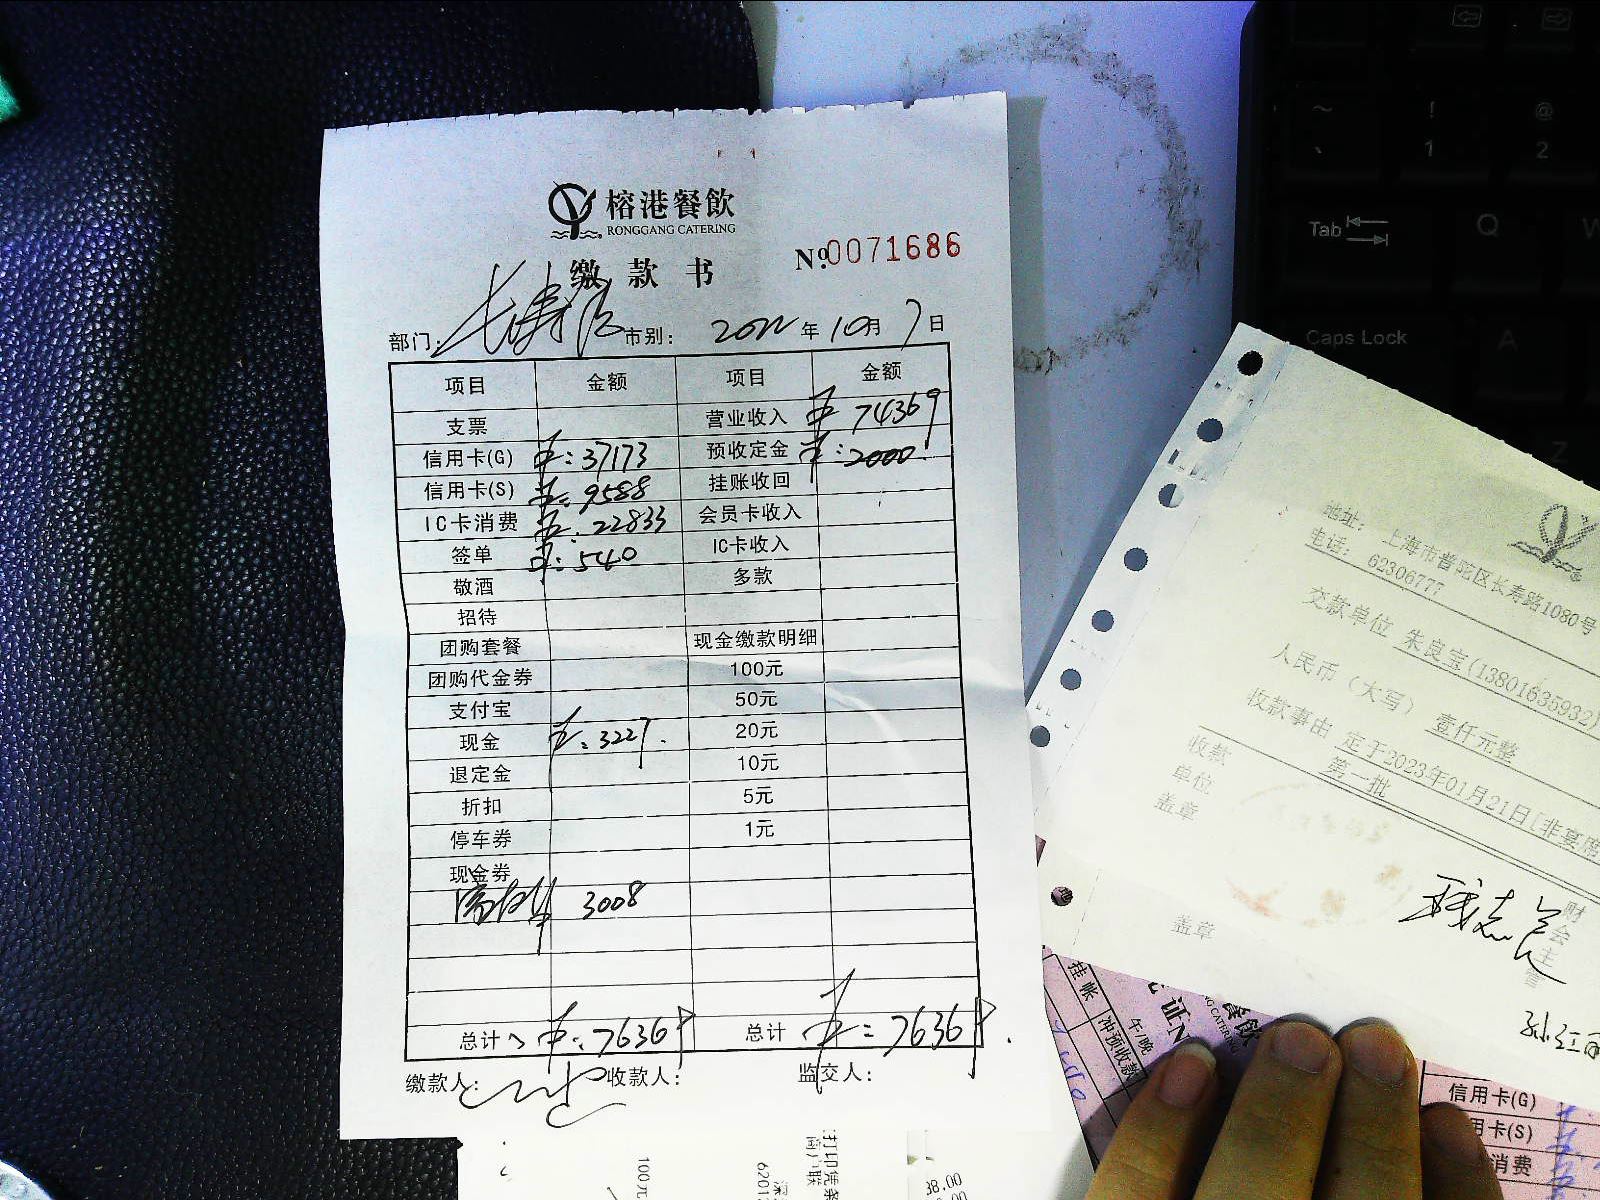 榕港餐飲
RONGGANG CATERING
缴款书
№0071686
部门：长寿店 市别： 2022年10月7日
项目 金额 项目 金额
支票 营业收入 74369
信用卡(G) 37173 预收定金 2000
信用卡(S) 9588 挂账收回
IC卡消费 22833 会员卡收入
签单 540 IC卡收入
敬酒 多款
招待
团购套餐 现金缴款明细
团购代金券 100元
支付宝 50元
现金 3227. 20元
退定金 10元
折扣 5元
停车券 1元
现金券
3008
总计 76369 总计 76369
缴款人： 收款人： 监交人：
地址： 上海市普陀区长寿路1080号
电话： 62306777
交款单位 朱良宝(13801635932)
人民币（大写） 壹仟元整
收款事由 定于2023年01月21日[非宴席
第一批
收款
单位
盖章
财会主管
盖章
挂帐
冲预收款
午/晚
证№
信用卡(G)
用卡(S)
消费
100元
打印凭条
商户联
38.00
Tab
Caps Lock
Q
A
Z
~
!
1
@
2